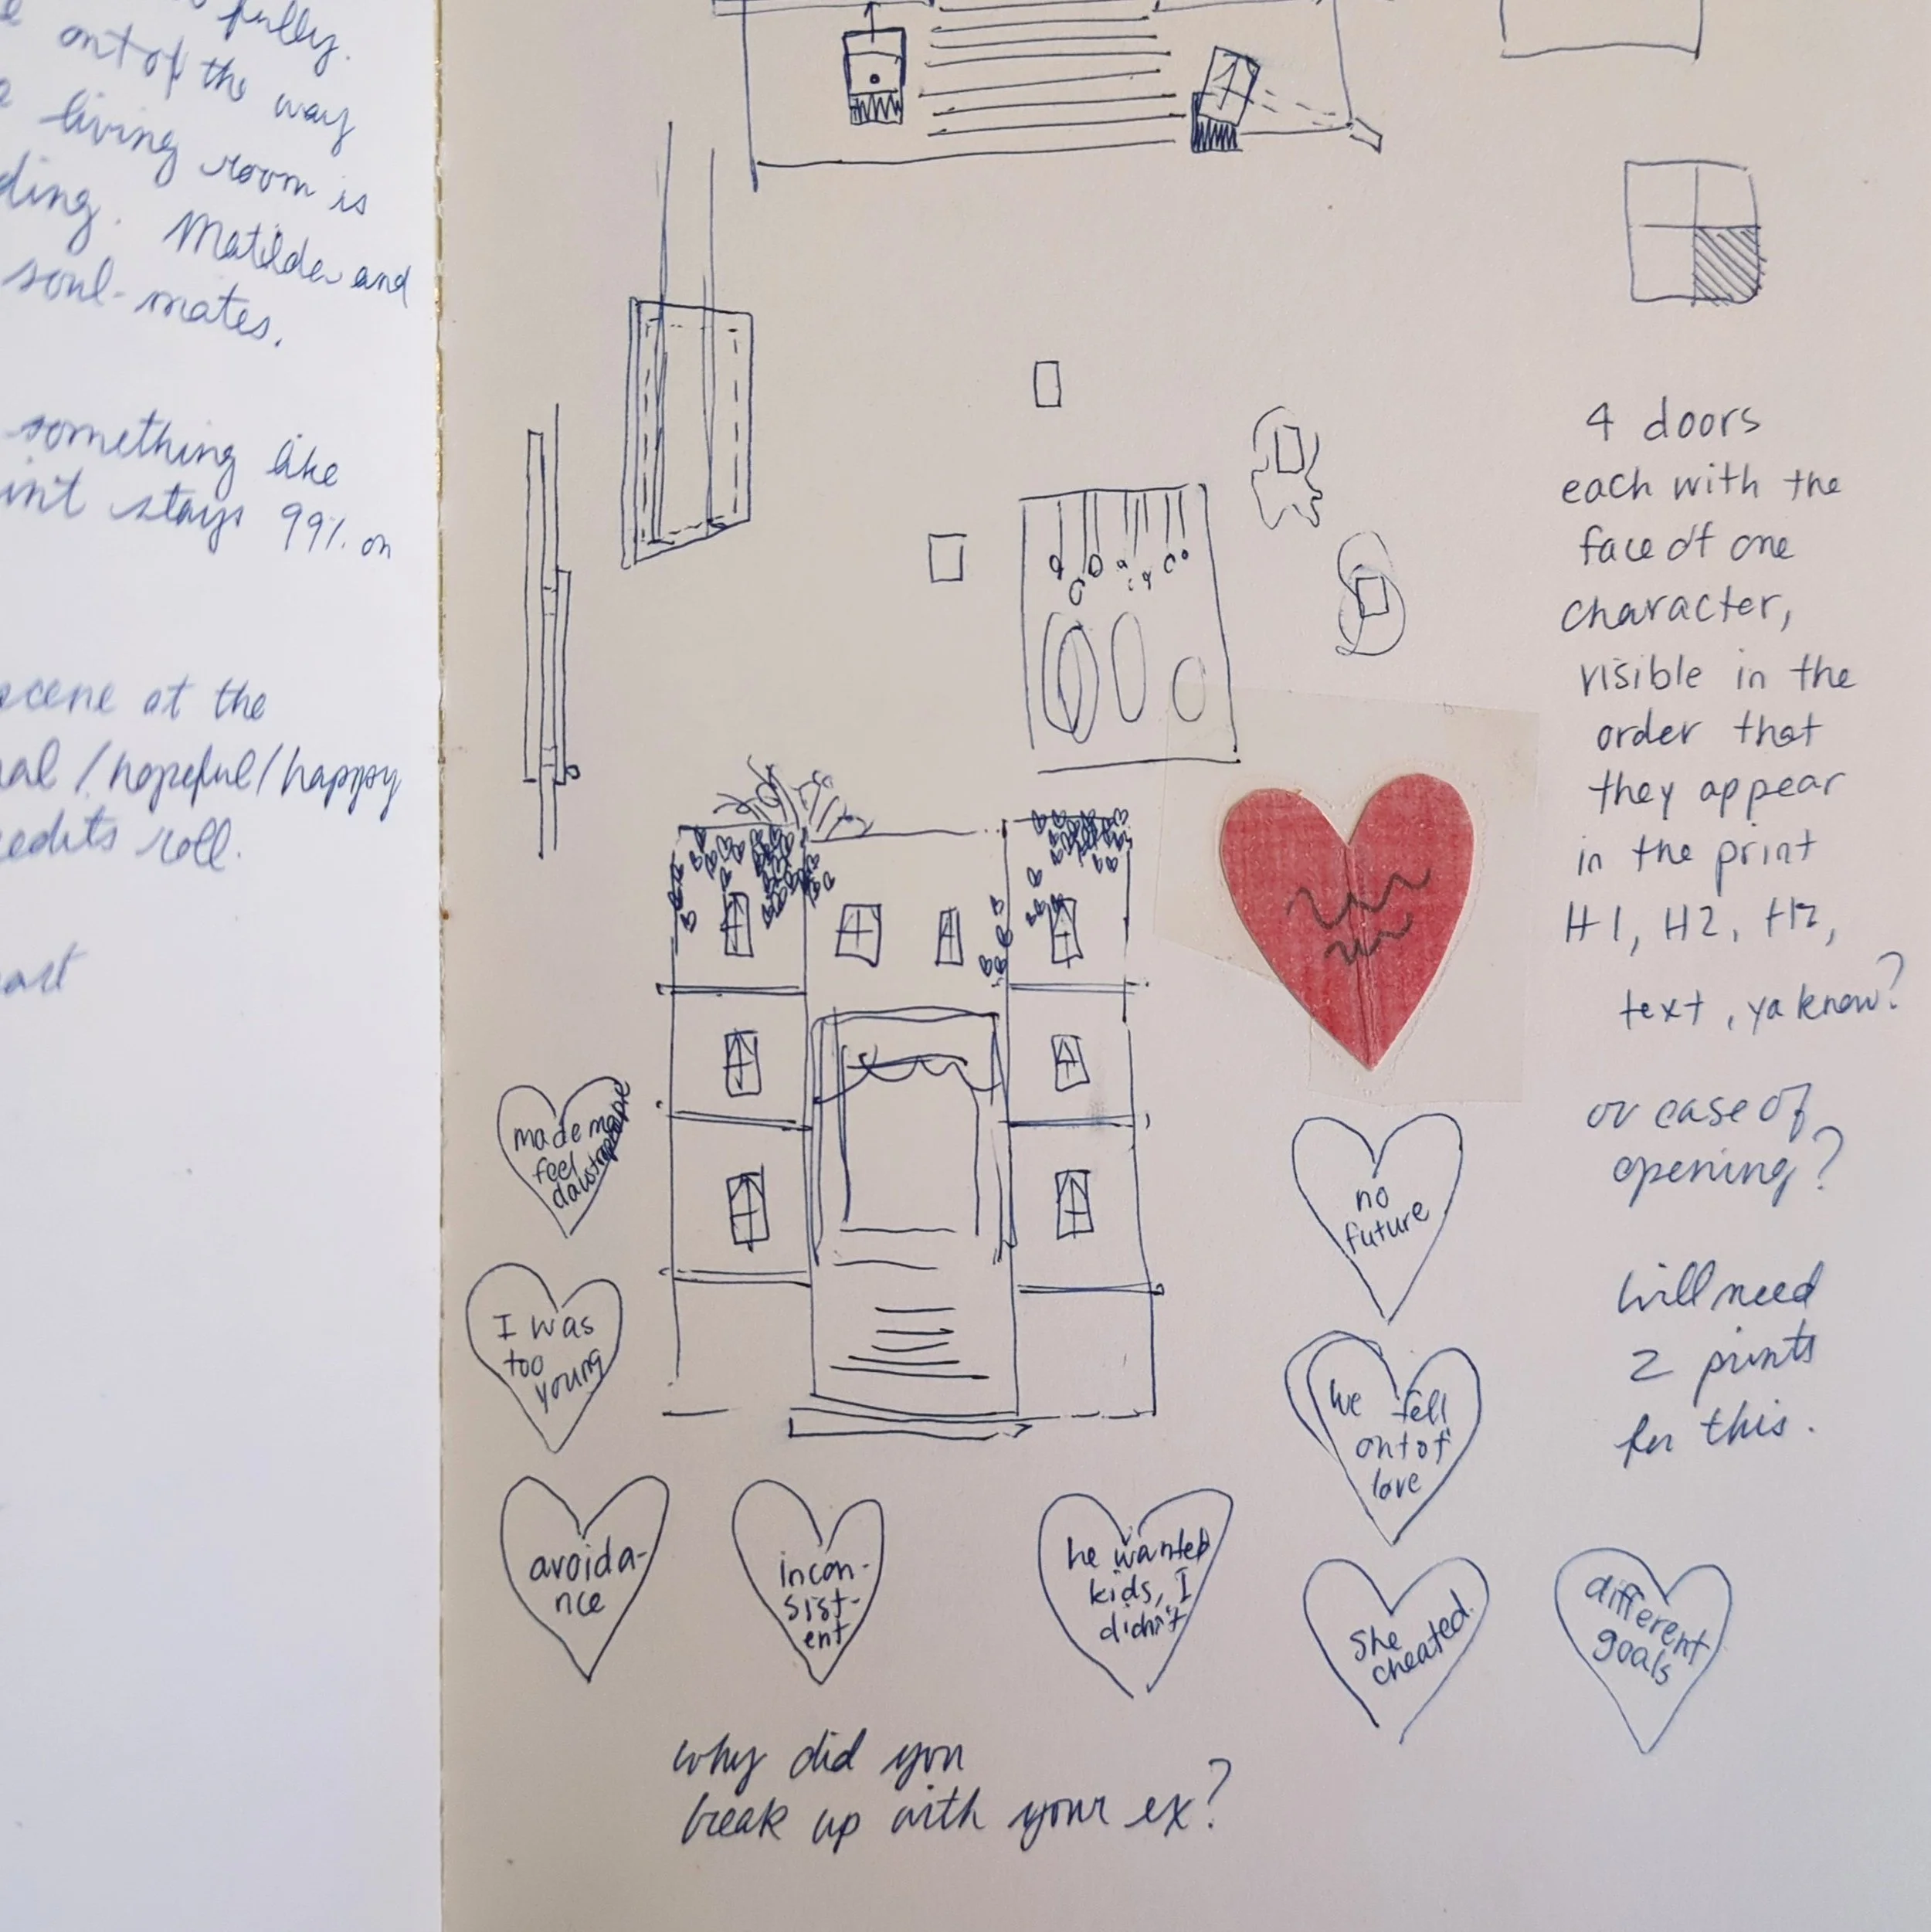 fully.
out of the way
living room is
ding. Matilda and
soul-mates.
something like
int stays 99% on
scene at the
al / hopeful / happy
edits roll.
4 doors
each with the
face of one
character,
visible in the
order that
they appear
in the print
H1, H2,
text, ya know?
or case of
opening?
will need
2 prints
for this.
made me
feel
I was
too
young
avoida-
nce
incon-
sist-
ent
he wanted
kids, I
didn't
no
future
we fell
out of
love
she
cheated.
different
goals
why did you
break up with your ex?